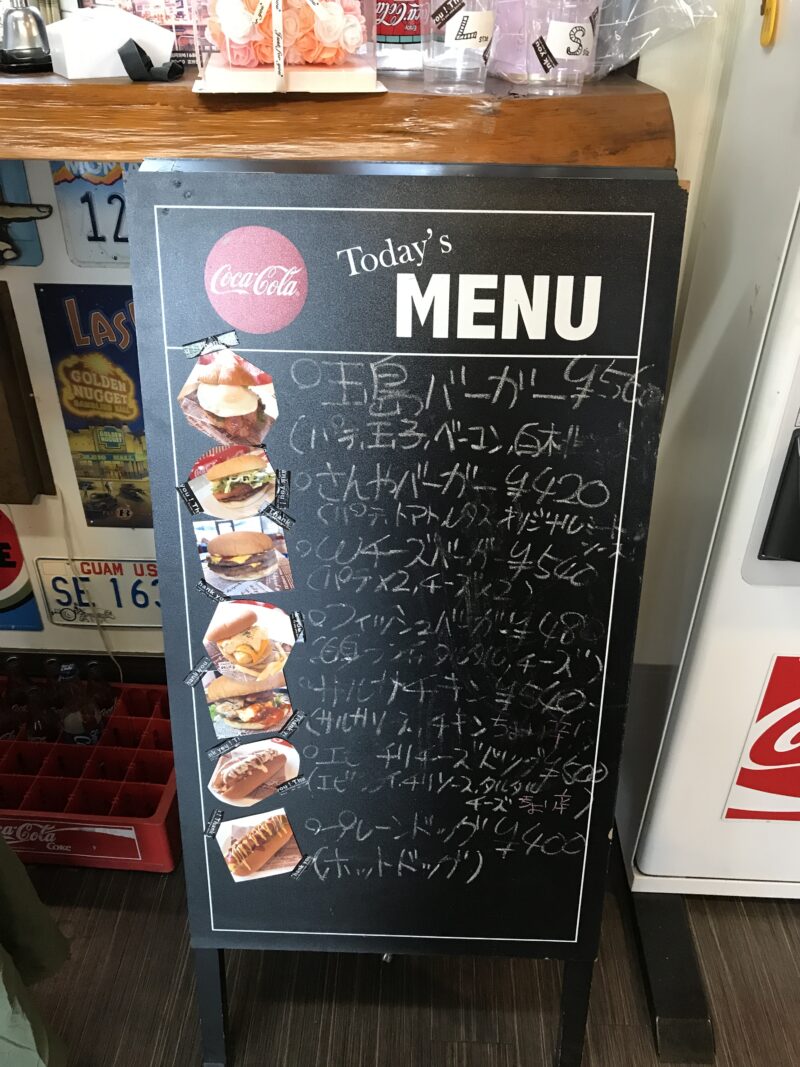 Coca-Cola
Today's
MENU
○玉島バーガー ¥560
(パテ,玉子,ベーコン,白桃
○さんやバーガー ¥420
(パテ,トマト,レタス,オリジナルソース
○Wチーズバーガー ¥540
(パテ×2,チーズ×2)
○フィッシュバーガー ¥480
タルタル,チーズ)
○サルサチキン ¥540
(サルサソース,チキン ちょい辛)
チリチーズドッグ ¥500
(エビ チリソース,タルタル
チーズ ちょい辛)
○プレーンドッグ ¥400
(ホットドッグ)
LAS
GOLDEN
NUGGET
GUAM US
SE 163
12
Coca-Cola
COKE
L
S